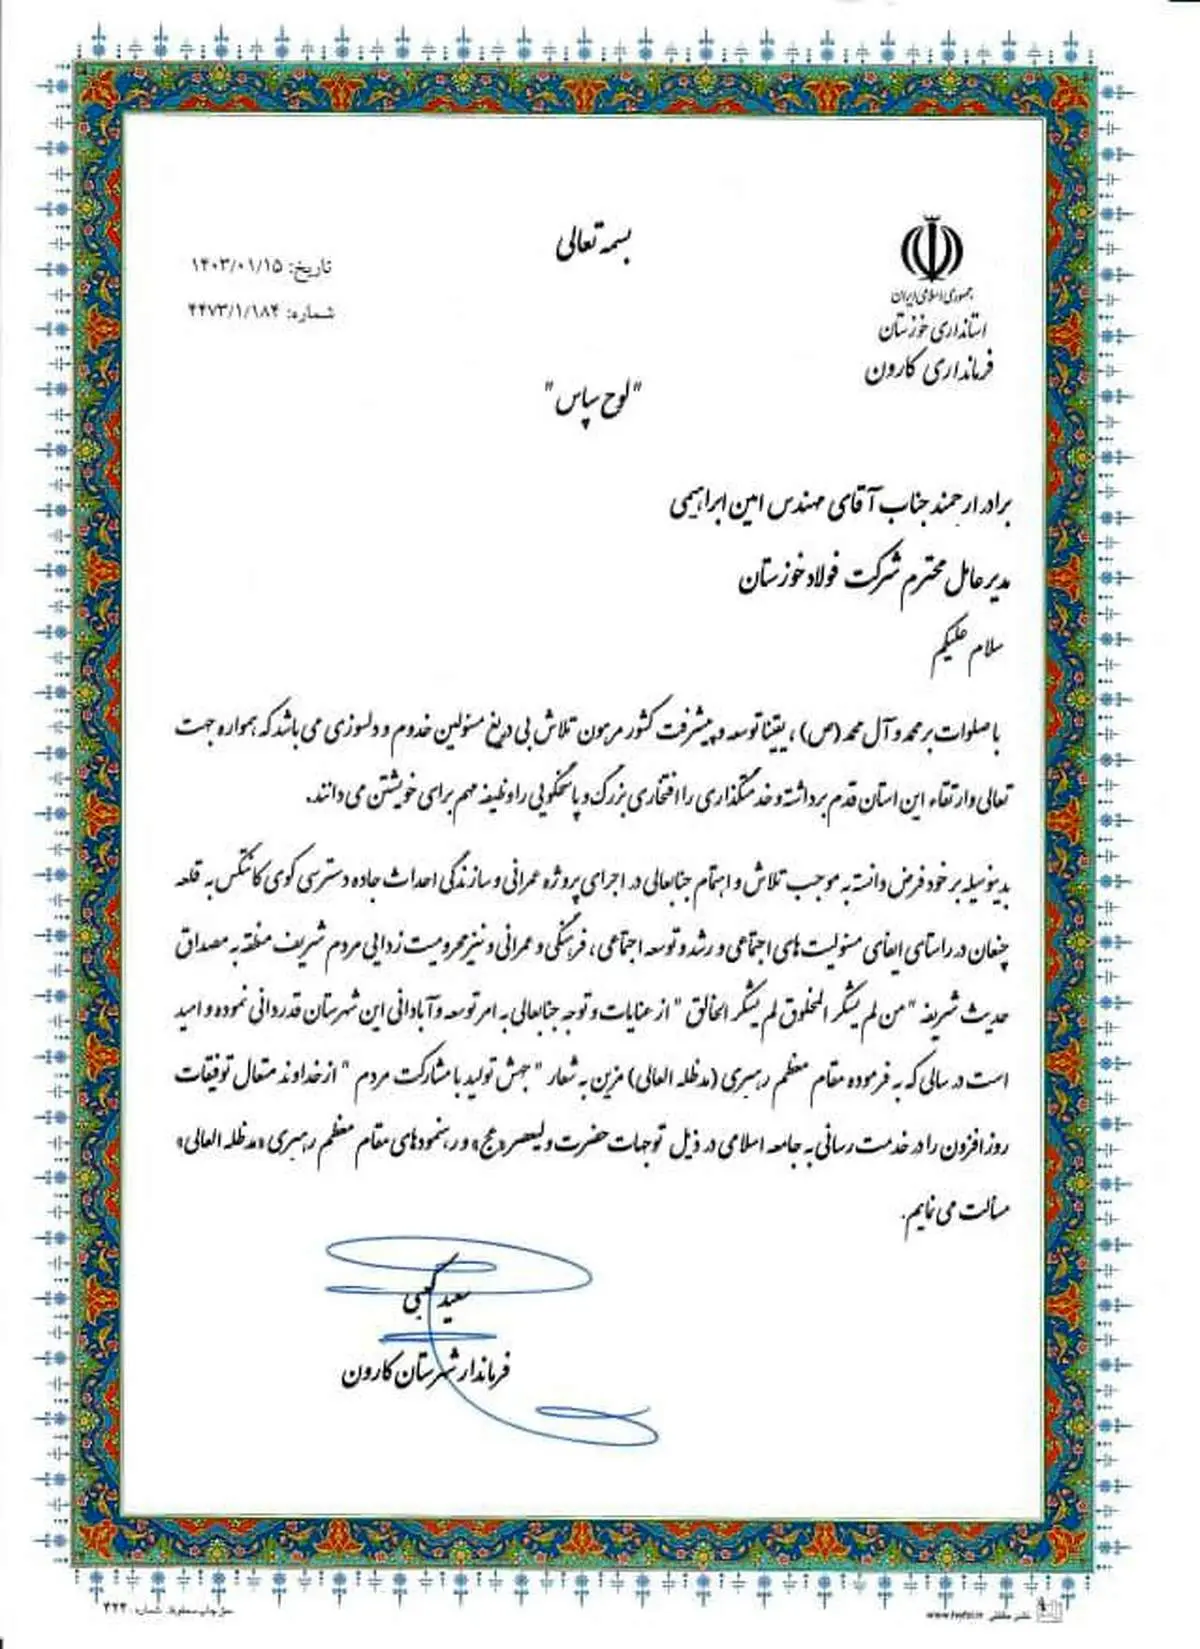 بسمه تعالی
جمهوری اسلامی ایران
استانداری خوزستان
فرمانداری کارون
تاریخ: ۱۴۰۳/۰۱/۱۵
شماره: ۴۴۷۳/۱/۱۸۴
"لوح سپاس"
برادر ارجمند جناب آقای مهندس امین ابراهیمی
مدیرعامل محترم شرکت فولاد خوزستان
سلام علیکم
با صلوات بر محمد و آل محمد (ص) ، یقینا توسعه و پیشرفت کشور مرهون تلاش بی دریغ مسئولین خدوم و دلسوزی می باشد که همواره جهت
تعالی و ارتقاء این استان قدم برداشته و خدمتگذاری را افتخاری بزرگ و پاسخگویی را وظیفه مهم برای خویشتن می دانند.
بدینوسیله بر خود فرض دانسته به موجب تلاش و اهتمام جنابعالی در اجرای پروژه عمرانی و سازندگی احداث جاده دسترسی کوی کانتکس به قلعه
چنعان در راستای ایفای مسئولیت های اجتماعی و رشد و توسعه اجتماعی ، فرهنگی و عمرانی و نیز محرومیت زدایی مردم شریف منطقه به مصداق
حدیث شریفه " من لم یشکر المخلوق لم یشکر الخالق " از عنایات و توجه جنابعالی به امر توسعه و آبادانی این شهرستان قدردانی نموده و امید
است در سالی که به فرموده مقام معظم رهبری (مدظله العالی) مزین به شعار " جهش تولید با مشارکت مردم " از خداوند متعال توفیقات
روز افزون را در خدمت رسانی به جامعه اسلامی در ذیل توجهات حضرت ولیعصر «عج» و رهنمودهای مقام معظم رهبری «مدظله العالی»
مسالت می نمایم.
سعید کعبی
فرماندار شهرستان کارون
حق چاپ محفوظ. شماره: ۴۲۴